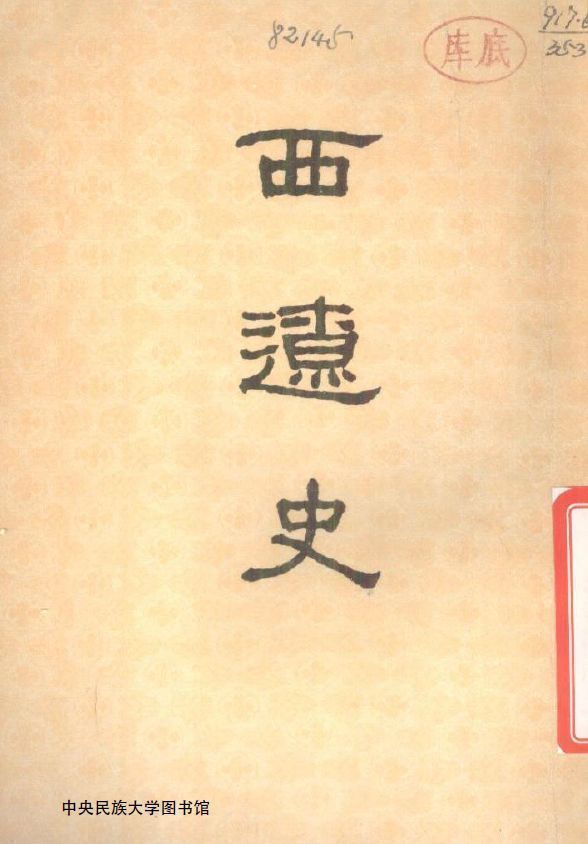 82145
底库
917.6
353
西
遼
史
中央民族大学图书馆